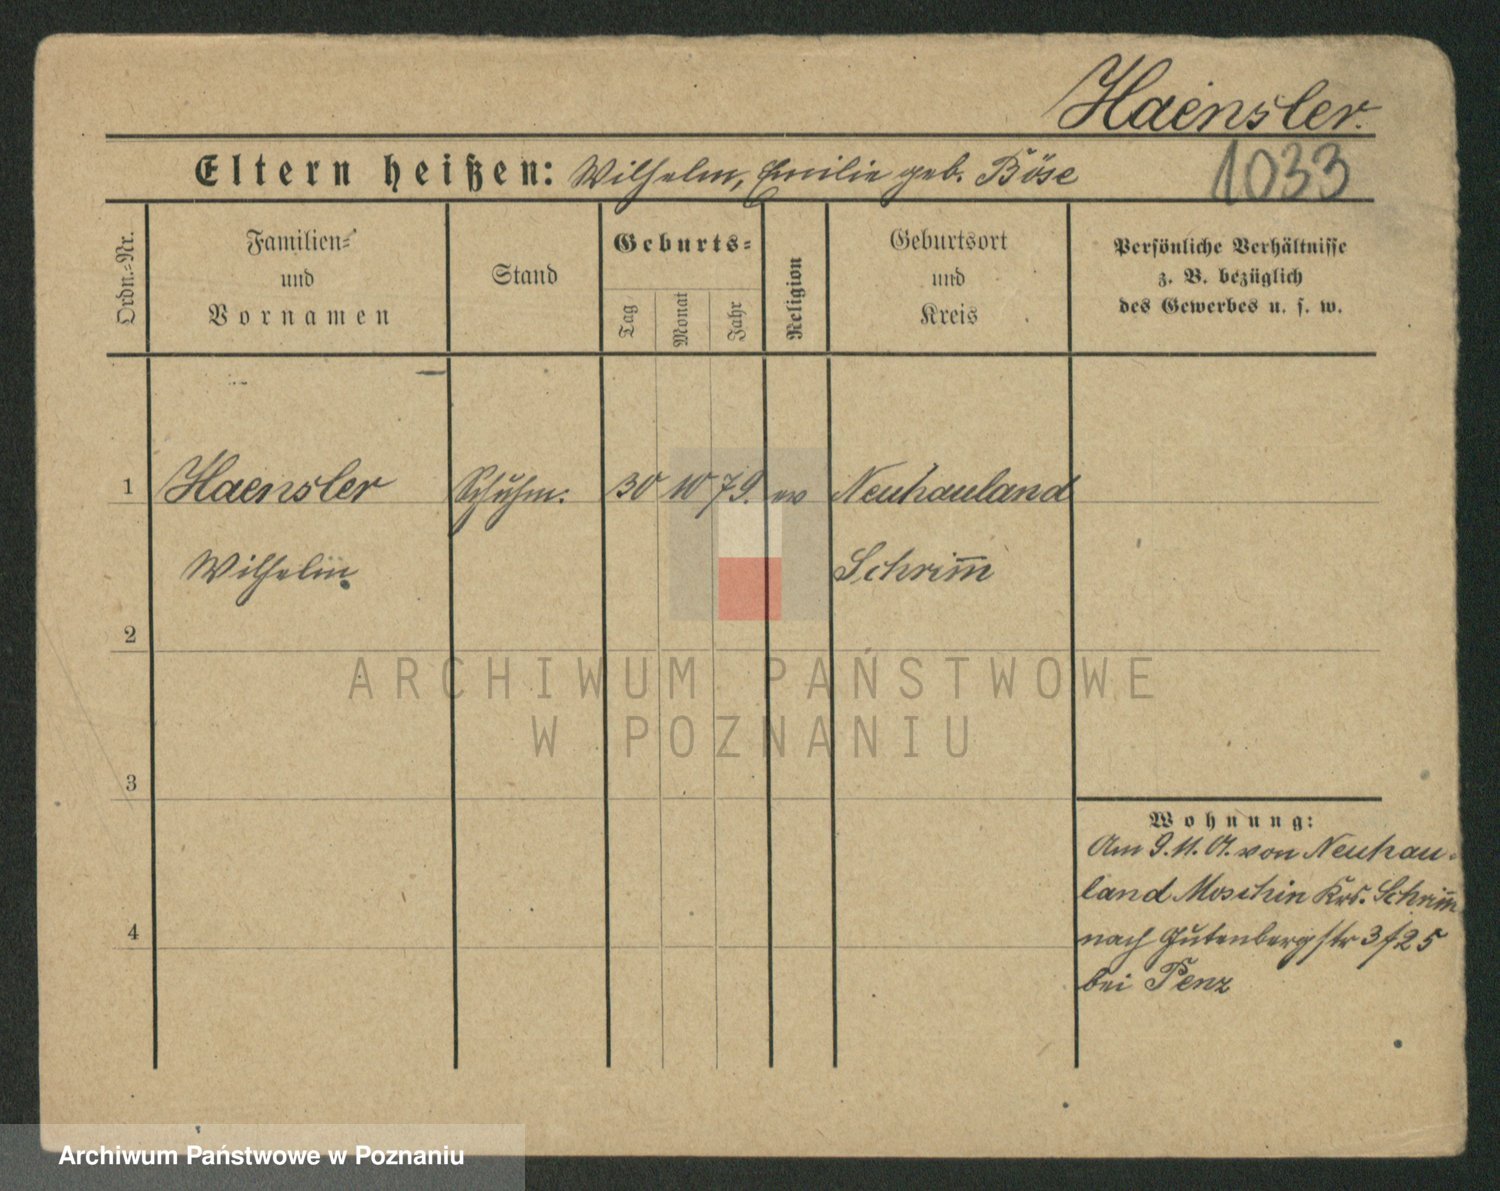 Haensler.
Eltern heißen: Wilhelm, Emilie geb. Böse
1033
Ordn.=Nr.
Familien=
und
Vornamen
Stand
Geburts=
Tag
Monat
Jahr
Religion
Geburtsort
und
Kreis
Persönliche Verhältnisse
z. B. bezüglich
des Gewerbes u. s. w.
1 Haensler Schuhm. 30 10 79. ev Neuhauland
Wilhelm Schrim̅
2
3
4
Wohnung:
Am 9.11.01. von Neuhau-
land Moschin Krs. Schrim̅
nach Gutenbergstr 3f25
bei Penz
ARCHIWUM PAŃSTWOWE
W POZNANIU
Archiwum Państwowe w Poznaniu